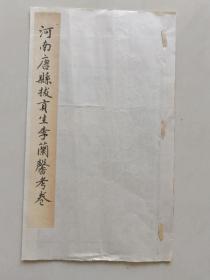 河南唐縣拔貢生李蘭馨考卷